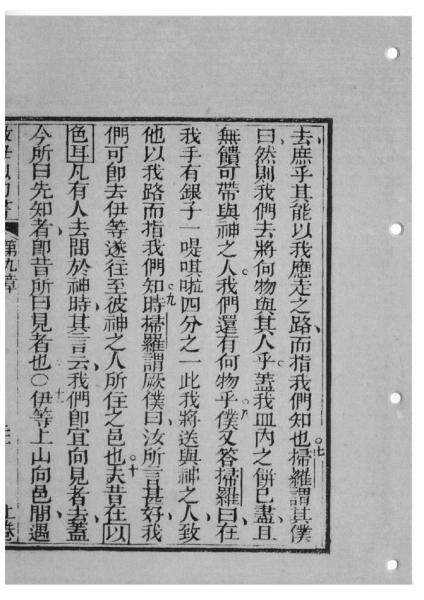 去庶乎其能以我應走之路而指我們知也○七掃羅謂其僕
曰然則我們去將何物與其人乎蓋我皿內之餅已盡且
無饋可帶與神之人我們還有何物乎○八僕又答掃羅曰在
我手有銀子一㗣唭啦四分之一此我將送與神之人致
他以我路而指我們知○九時掃羅謂厥僕曰汝所言甚好我
們可即去伊等遂往至彼神之人所住之邑也○十夫昔在以
色耳凡有人去問於神時其言云我們即宜向見者去蓋
今所曰先知者即昔所曰見者也○十一伊等上山向邑間遇
第九章